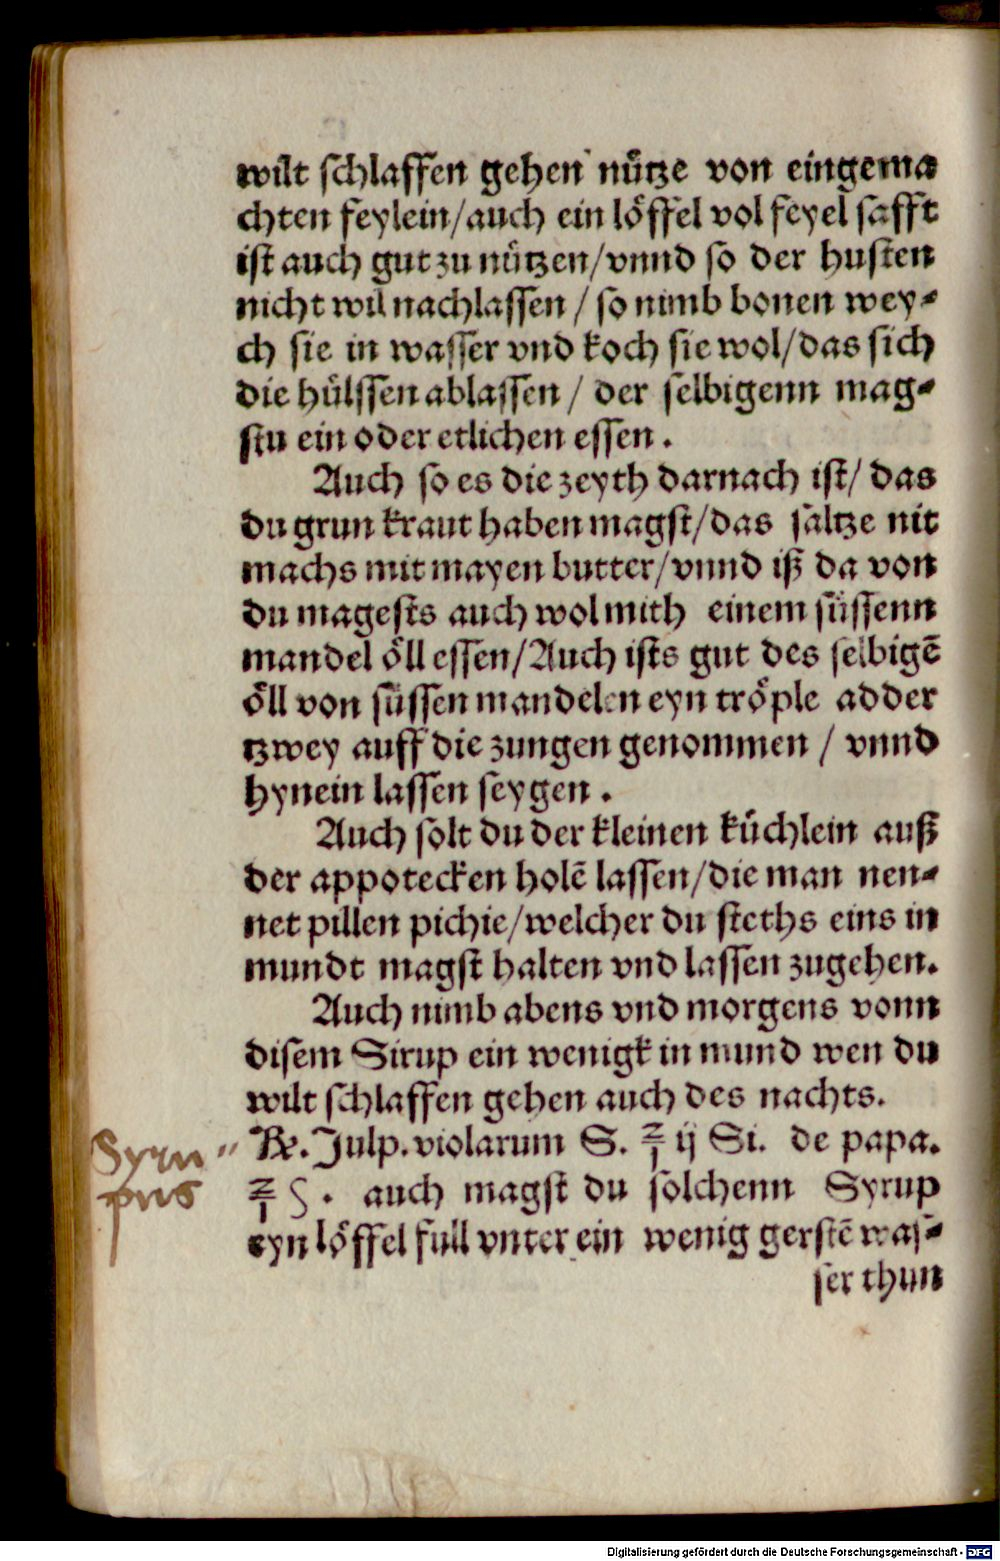 wilt schlaffen gehen nuͤtze von eingema
chten feylein/auch ein loͤffel vol feyel safft
ist auch gut zu nuͤtzen/vnnd so der husten
nicht wil nachlassen / so nimb bonen wey⸗
ch sie in wasser vnd koch sie wol/das sich
die huͤlssen ablassen / der selbigenn mag⸗
stu ein oder etlichen essen .
Auch so es die zeyth darnach ist/ das
du grun kraut haben magst/das saltze nit
machs mit mayen butter/vnnd iß da von
du magests auch wol mith einem suͤssenn
mandel oͤll essen/Auch ists gut des selbigē
oͤll von suͤssen mandelen eyn troͤple adder
tzwey auff die zungen genommen / vnnd
hynein lassen seygen .
Auch solt du der kleinen kuͤchlein auß
der appotecken holē lassen/die man nen⸗
net pillen pichie/welcher du steths eins in
mundt magst halten vnd lassen zugehen.
Auch nimb abens vnd morgens vonn
disem Sirup ein wenigk in mund wen du
wilt schlaffen gehen auch des nachts.
Syru
pus
℞. Julp. violarum S. ℥ ij Si. de papa.
℥ ʃ . auch magst du solchenn Syrup
eyn loͤffel full vnter ein wenig gerstē was⸗
ser thun
Digitalisierung gefördert durch die Deutsche Forschungsgemeinschaft - DFG